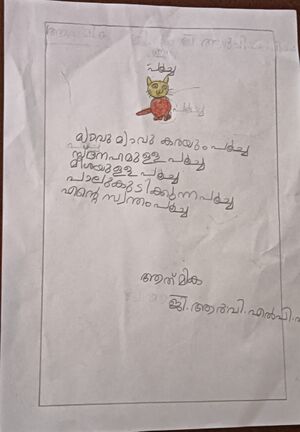 പൂച്ച
പൂച്ച
മ്യാവു മ്യാവു കരയും പൂച്ച
സ്നേഹമുള്ള പൂച്ച
മീശയുള്ള പൂച്ച
പാലുകുടിക്കുന്ന പൂച്ച
എന്റെ സ്വന്തം പൂച്ച
ആത്മിക
ജി. ആർ. വി. എൽ. പി.